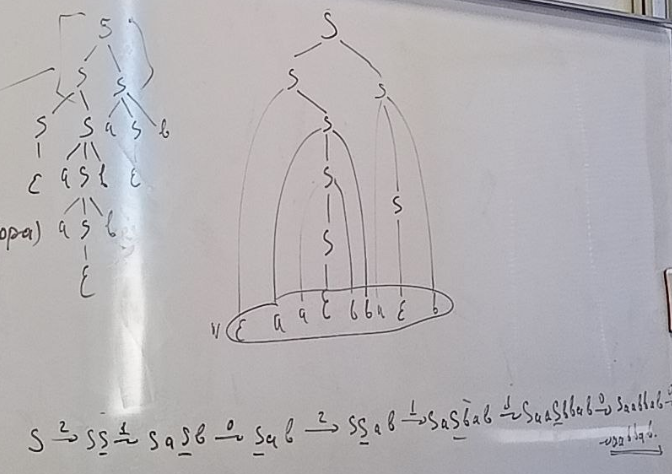 S
S S
S S a S b
ε a S b ε
a S b
ε
ора)
S
S S
S
S S
S
ε a a ε b b a ε b
S ²→ SS ¹→ SaSb ⁰→ Sab ²→ SSab ¹→ SaSbab ¹→ SaaSbbab ⁰→ Saabbab ⁰→
aabbab.